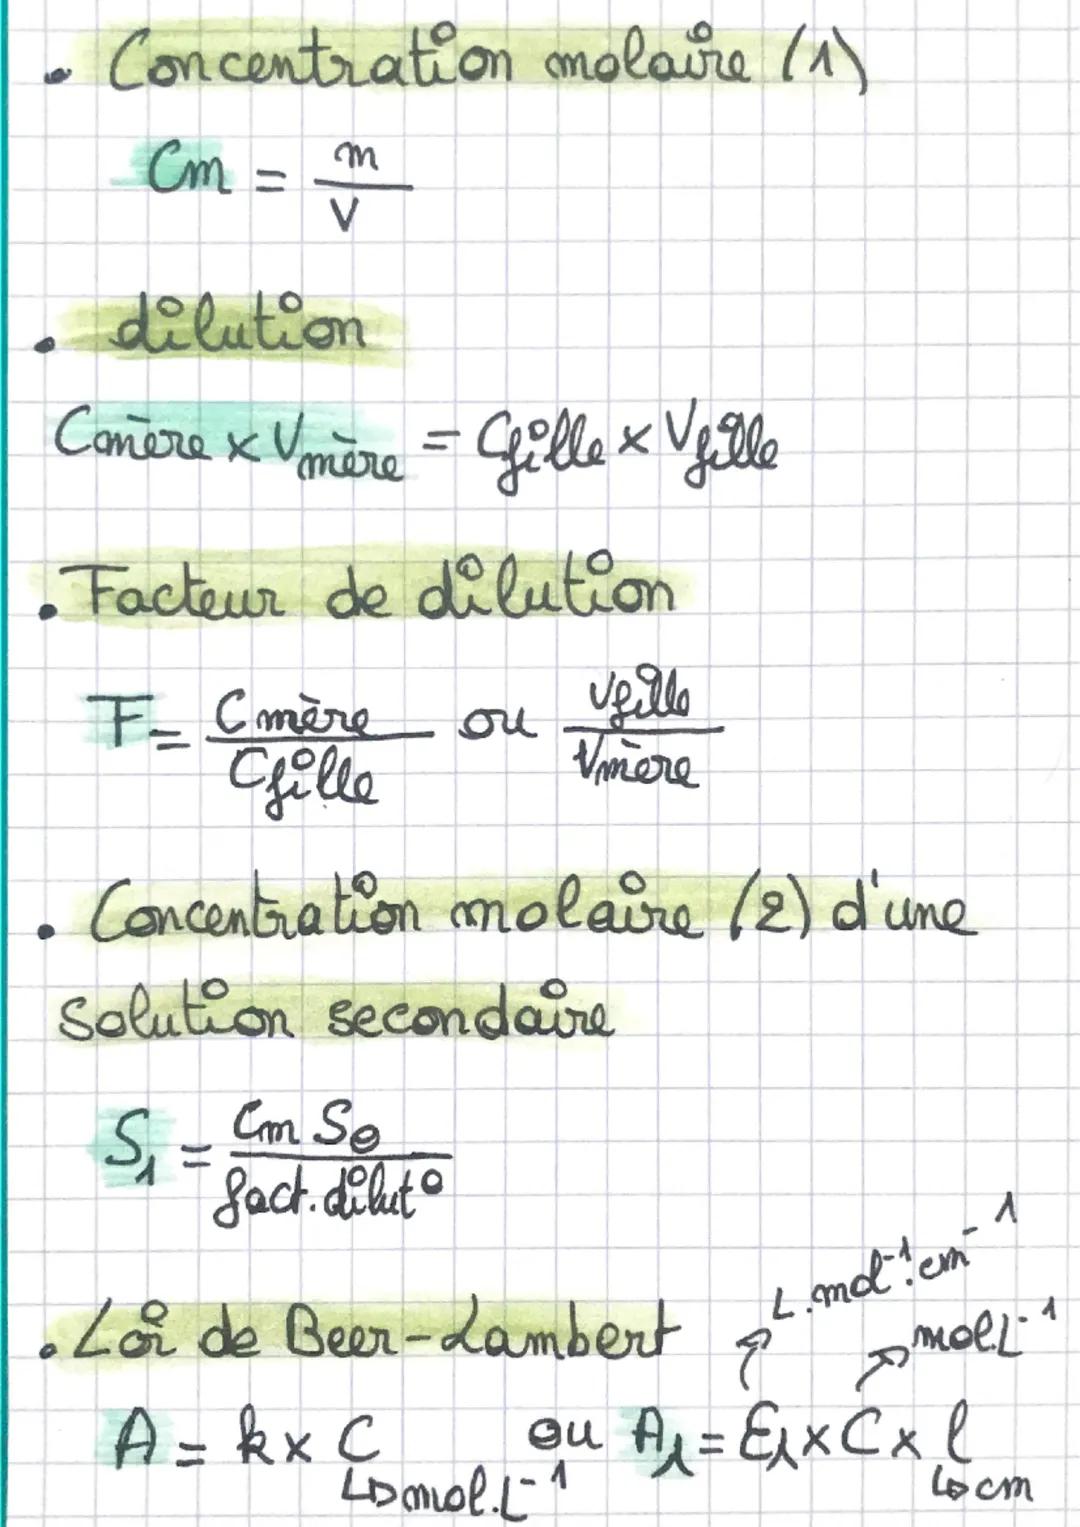 • Concentration molaire (1)
Cm = m/V
• dilution
Cmère x Vmère = Cfille x Vfille
• Facteur de dilution
F = Cmère/Cfille ou Vfille/Vmère
• Concentration molaire (2) d'une
solution secondaire
S₁ = Cm S₀/fact. dilut°
• Loi de Beer-Lambert
L.mol⁻¹.cm⁻¹
mol.L⁻¹
A = k x C ou Aλ = Ελ x C x l
↳ mol.L⁻¹
↳ cm